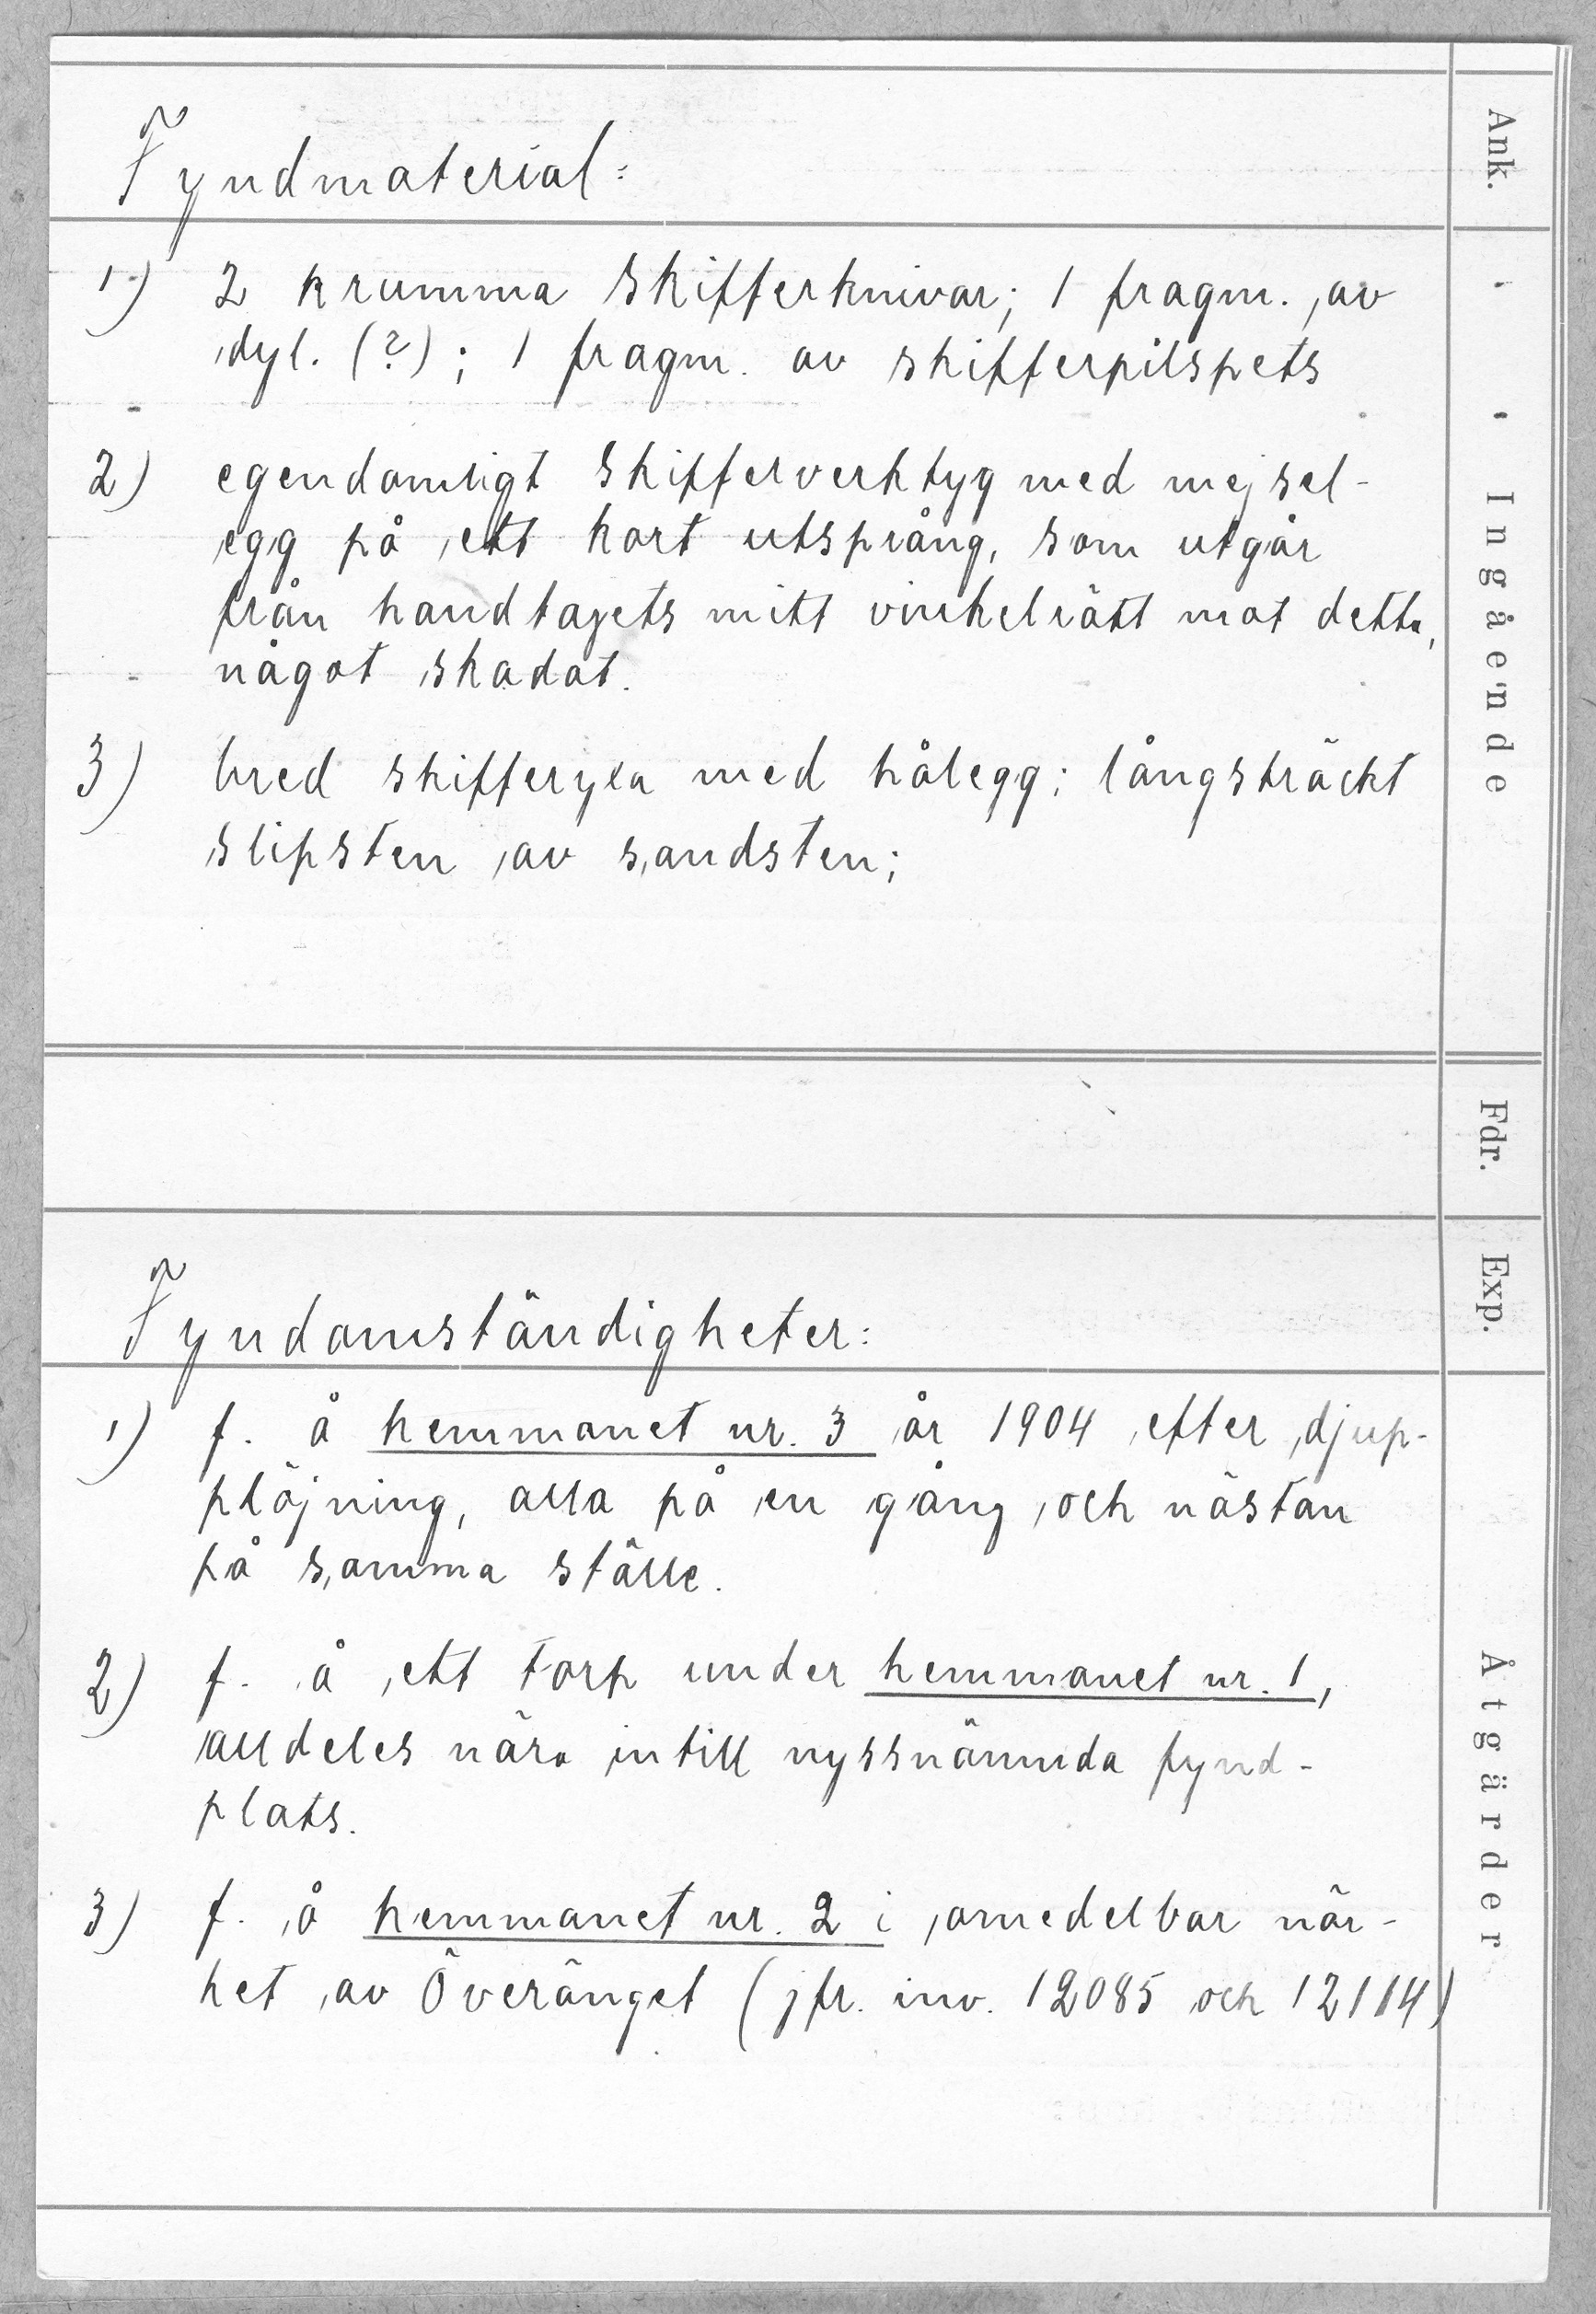 Fyndmaterial:
1) 2 krumma skifferknivar; 1 fragm. av
dyl. (?); 1 fragm. av skifferpilspets
2) egendomligt skifferverktyg med mejsel-
egg på ett kort utsprång, som utgår
från handtagets mitt vinkelrätt mot detta,
något skadat.
3) bred skifferyxa med hålegg; långsträckt
slipsten av sandsten;
Fyndomständigheter:
1) f. å hemmanet nr. 3 år 1904 efter djup-
plöjning, alla på en gång och nästan
på samma ställe.
2) f. å ett torp under hemmanet nr. 1,
alldeles nära intill nyssnämnda fynd-
plats.
3) f. å hemmanet nr. 2 i omedelbar när-
het av Överänget (jfr. inv. 12085 och 12114)
Ank.
Ingående
Fdr.
Exp.
Åtgärder